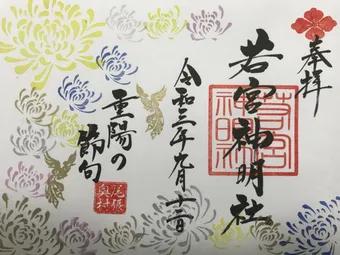 奉拝
若宮神明社
令和三年九月十二日
重陽の
節句